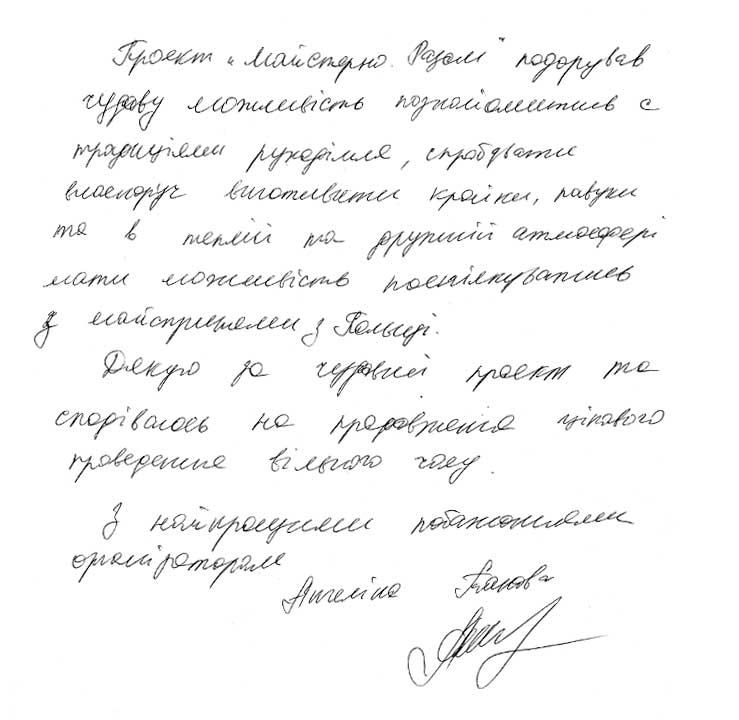 Проект „Майстерно. Разом" подорував
чудову можливість познайомитись с
традиціями рукоділля, спробувати
власноруч виготовити крайки, павуки
та в теплій та дружній атмосфері
мати можливість поспілкуватись
з майстринями з Польщі.
Дякую за чудовий проект та
сподіваюсь на продовження цікавого
проведення вільного часу.
З найкращими побажаннями
організаторам
Ангеліна Панова